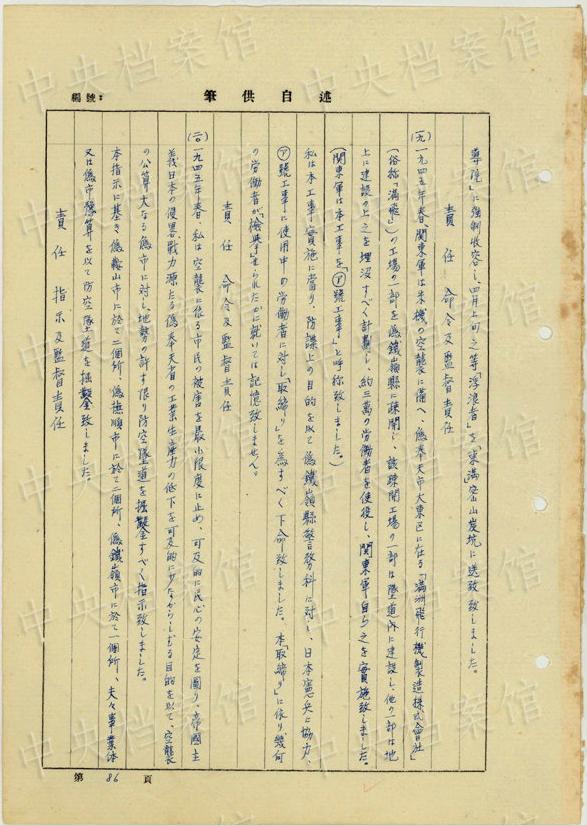 述自供筆
編號：
專院」に強制收容し、四月上旬之等「浮浪者」を「東滿」密山炭坑に送致致しました。
責任　命令及監督責任
(一九)一九四五年春、關東軍は米機の空襲に備へ、偽奉天市大東区に在る「滿洲飛行機製造株式會社」
(俗称「滿飛」)の工場の一部を偽鐵嶺縣に疎開し、該疎開工場の一部は隧道内に建設し、他の一部は地
上に建設の上之を埋沒すべく計劃し、約三萬の労働者を使役し、關東軍自ら之を實施致しました。
(關東軍は本工事を「㋐號工事」と呼称致しました。)
私は本工事實施に當り、防諜上の目的を以て偽鐵嶺縣警務科に対し、日本憲兵に協力、
㋐號工事に使用中の労働者に対し「取締り」を為すべく下命致しました。本「取締り」に依り幾何
の労働者が「檢擧」せられたかに就いては記憶致しません。
責任　命令及監督責任
(二〇)一九四五年春、私は空襲に依る市民の被害を最小限度に止め、可及的に民心の安定を圖り、帝國主
義日本の侵畧戰力源たる偽奉天省の工業生産力の低下を可及的に少なからしむる目的を以て、空襲
の公算大なる偽市に対し、地勢の許す限り防空隧道を掘鑿すべく指示致しました。
本指示に基き、偽鞍山市に於て二個所、偽撫順市に於て二個所、偽鐵嶺市に於て一個所、夫々事業体
又は偽市豫算を以て防空隧道を掘鑿致しました。
責任　指示及監督責任
第86頁
中央档案馆